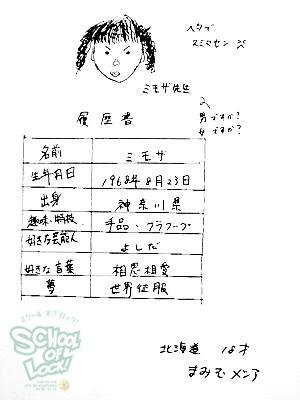 ヘタで
スミマセン
ミモザ先生
男ですか?
女ですか?
履歴書
名前 ミモザ
生年月日 1968年8月23日
出身 神奈川県
趣味・特技 手品・フラフープ
好きな芸能人 よしだ
好きな言葉 相思相愛
夢 世界征服
スクール オブ ロック!
SCHOOL
OF
LOCK!
北海道 18才
まみむメンマ